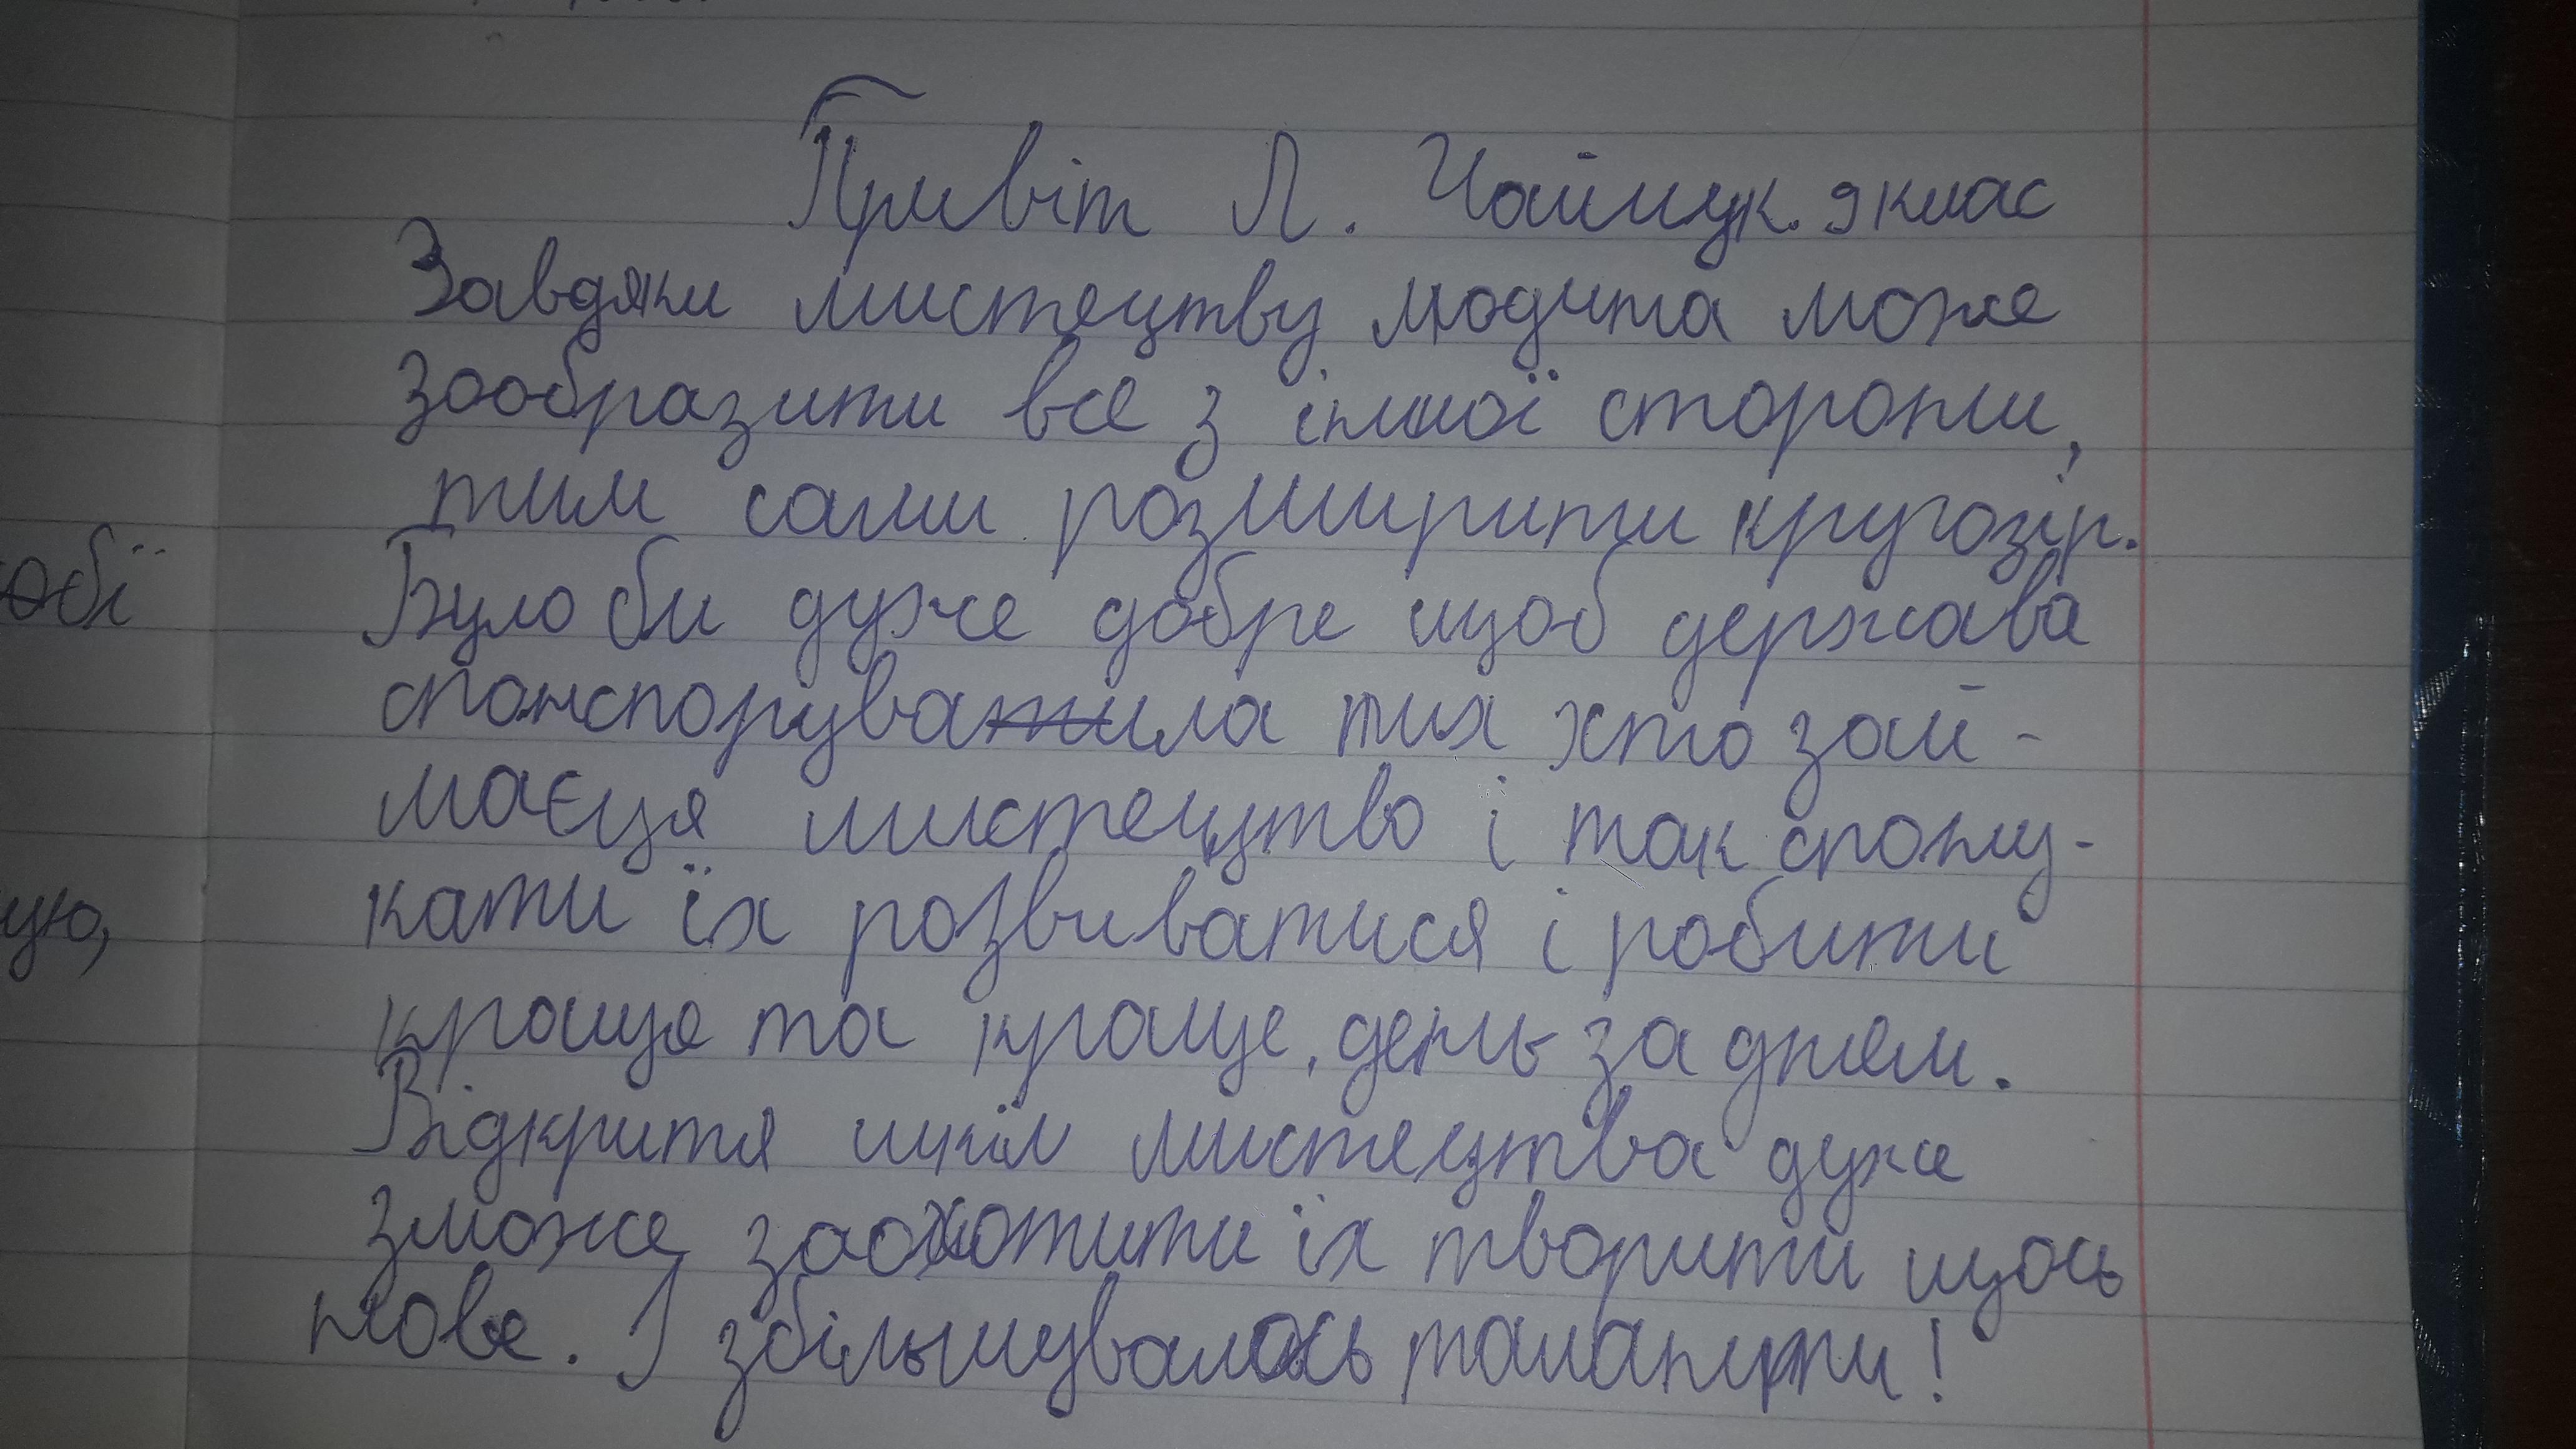 Привіт Л. Чайчук. 9 клас
Завдяки мистецтву людина може
зообразити все з іншої сторони,
тим сами розширити кругозір.
обії
Було би дуже добре щоб держава
спонспорувала тих хто зай-
маєця мистецтво і так спону-
кати їх розвиватися і робити
ую,
краще та краще, день за днем.
Відкритя шкіл мистецтва дуже
зможе заохотити їх творити щось
нове. І збільшувалось таланти!